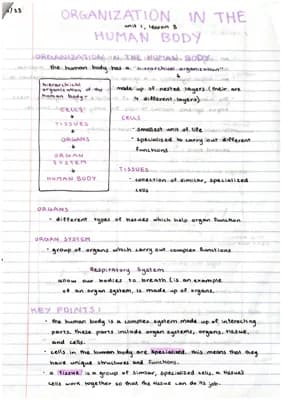 ORGANIZATION IN THE
unit 1, lesson 3
HUMAN BODY
ORGANIZATION IN THE HUMAN BODY
the human body has a "hierarchical organization"
hierarchical organization of the human body:
CELLS
TISSUES
ORGANS
ORGAN SYSTEM
HUMAN BODY
made up of nested layers (their are
4 different layers)
CELLS
• smallest unit of life
• specialized to carry out different
functions
TISSUES
• collection of similar, specialized
cells
ORGANS
• different types of tissues which help organ function
ORGAN SYSTEM
• group of organs which carry out complex functions
Respiratory System
allow our bodies to breath (is an example
of an organ system, is made up of organs.
KEY POINTS:
• the human body is a complex system made up of interacting
parts. these parts include organ systems, organs, tissue,
and cells.
• cells in the human body are specialized. this means that they
have unique structures and functions.
• a tissue is a group of similar, specialized cells. a tissues
cells work together so that the tissue can do its job.